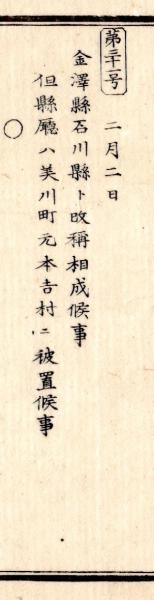 第三十一号
二月二日
金澤縣石川縣ト改稱相成候事
但縣廳ハ美川町元本吉村ニ被置候事
○